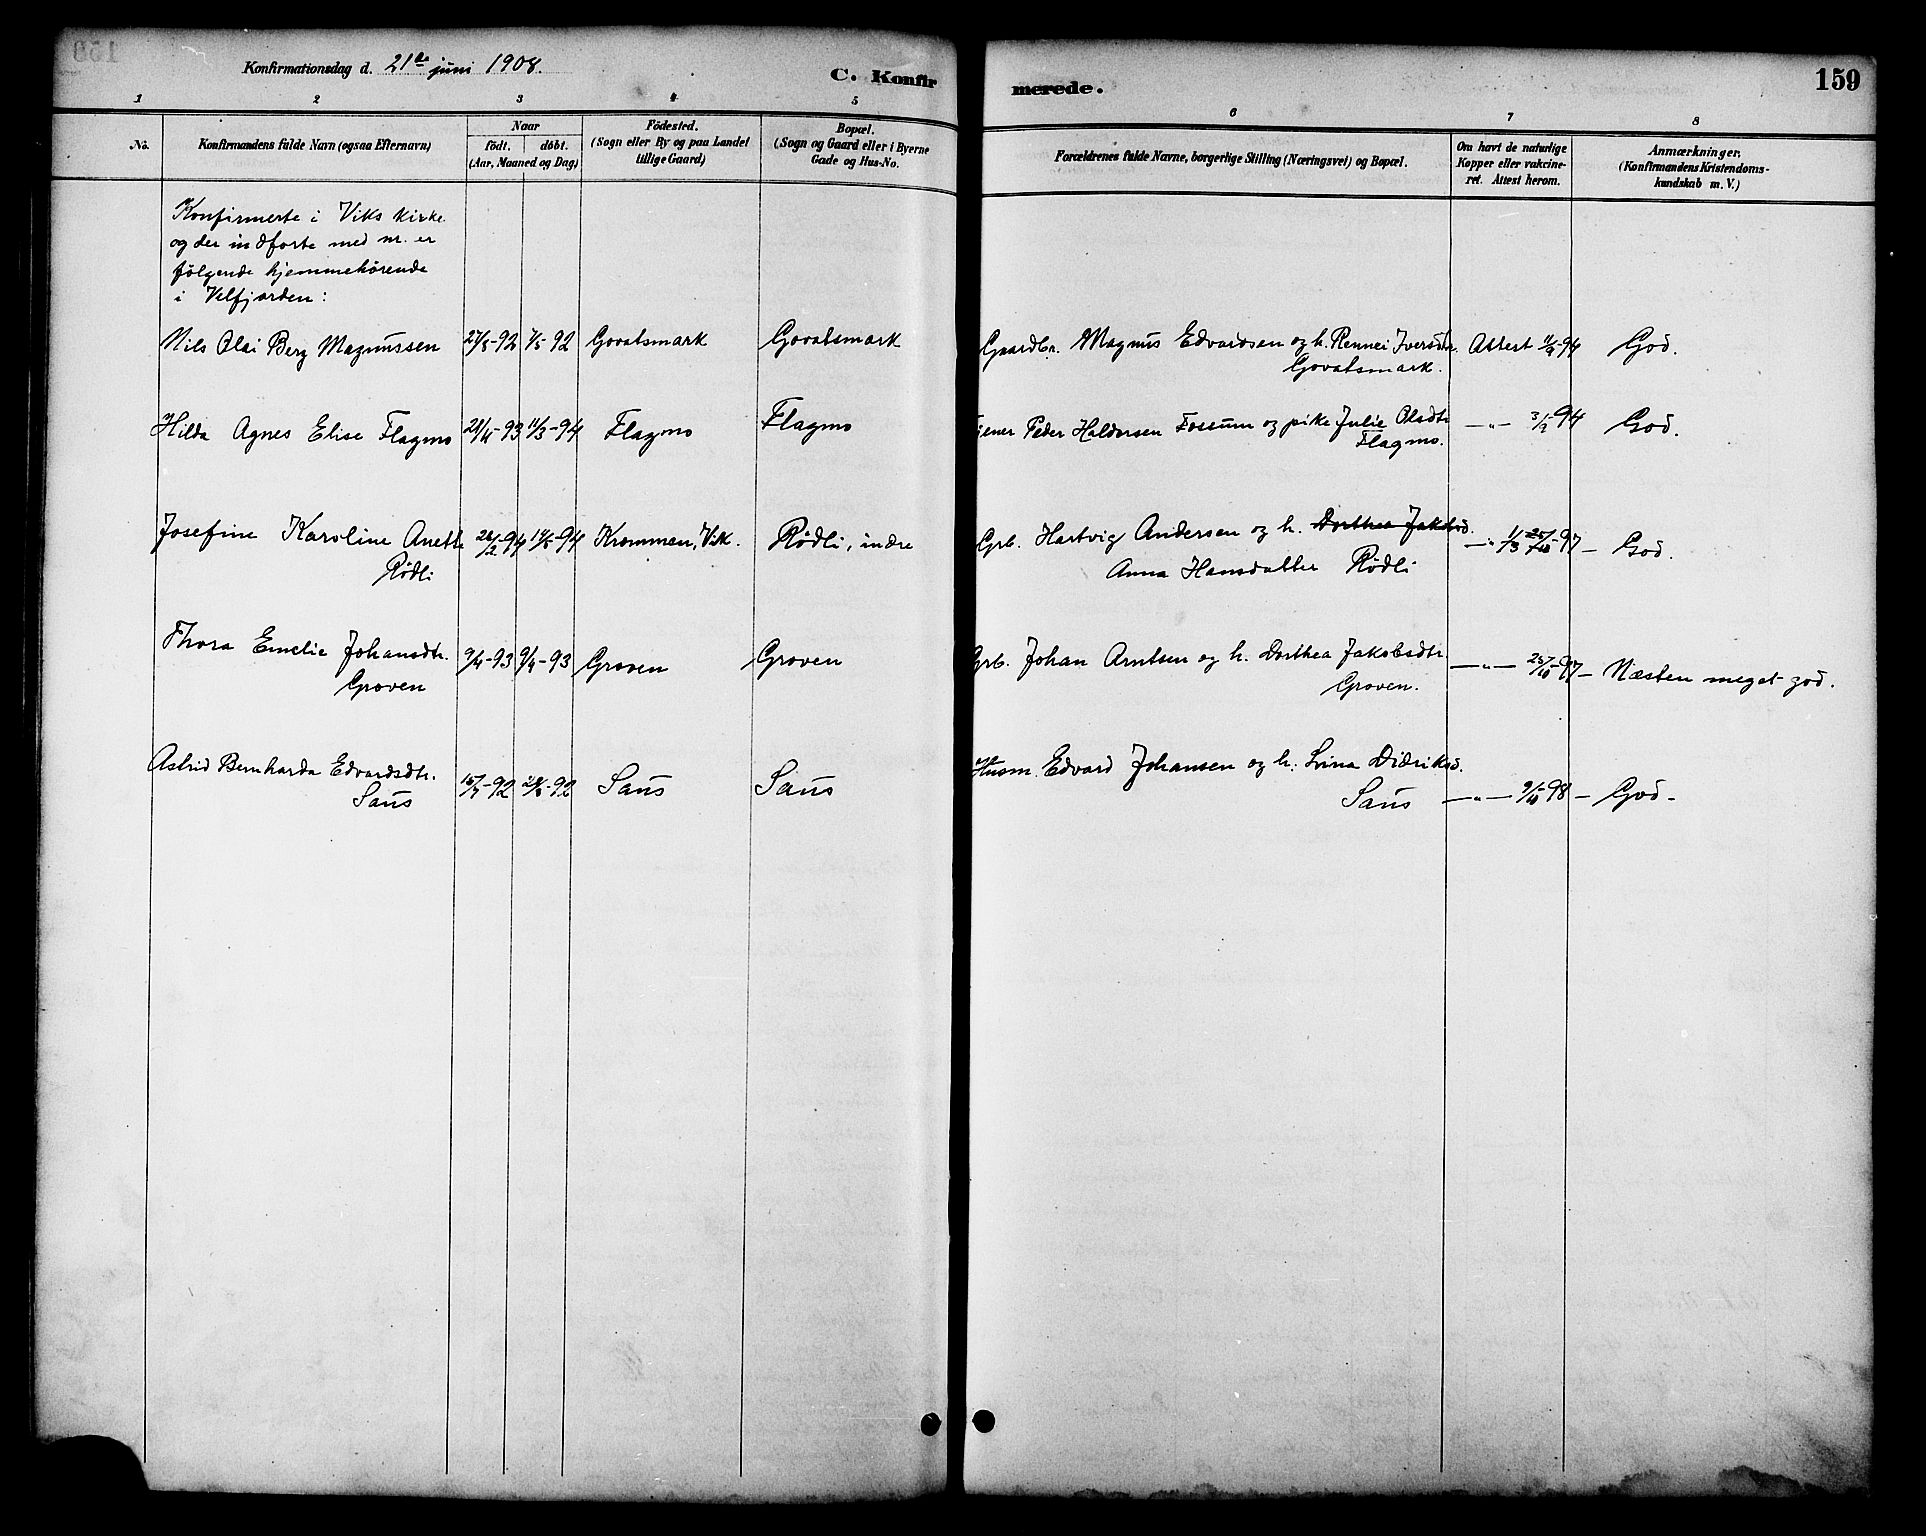 Konfirmationsdag d. 21de juni 1908.
C. Konfirmerede.
159
1 2 3 4 5 6 7 8
No.
Konfirmandens fulde Navn (ogsaa Efternavn)
Naar
födt. döbt.
(Aar, Maaned og Dag)
Födested.
(Sogn eller By og paa Landet
tillige Gaard)
Bopæl.
(Sogn og Gaard eller i Byerne
Gade og Hus-No.
Forældrenes fulde Navne, borgerlige Stilling (Næringsvei) og Bopæl.
Om havt de naturlige
Kopper eller vakcine-
ret. Attest herom.
Anmærkninger.
(Konfirmandens Kristendoms-
kundskab m. V.)
Konfirmerte i Viks kirke
og der indførte med nr. er
følgende hjemmehørende
i Velfjorden:
Nils Olai Berg Magnussen 7/5-92 Govatsmark Govatsmark Gaardbr. Magnus Edvardsen og h. Rennei Iversdtr. Attest -94 God.
Govatsmark.
Hilda Agnes Elise Flagmo -93 11/3-94 Flagmo Flagmo Peder Haldorsen Fossum og pike Julie Olsdtr. —"— 3/2 94 God.
Flagmo.
Josefine Karoline Anette 26/2-94 -94 Krommen, Vik. Rødli, indre Grb. Hartvig Andersen og h. Dorthea Jakobsd. —"— 1/3 25/10-97 — God.
Rødli Anna Hansdatter Rødli
Thora Emelie Johansdtr. 9/4-93 9/4-93 Groven Groven Grb. Johan Arntsen og h. Dorthea Jakobsdtr. —"— 25/10-97 — Næsten meget god.
Groven Groven.
Astrid Bernharda Edvardsdtr. -92 -92 Saus Saus Husm. Edvard Johansen og h. Lina Didriksd.
Saus Saus —"— 9/10-98 — God.